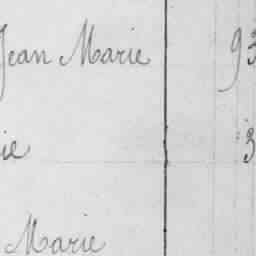 Jean Marie 93
ie 3
Marie